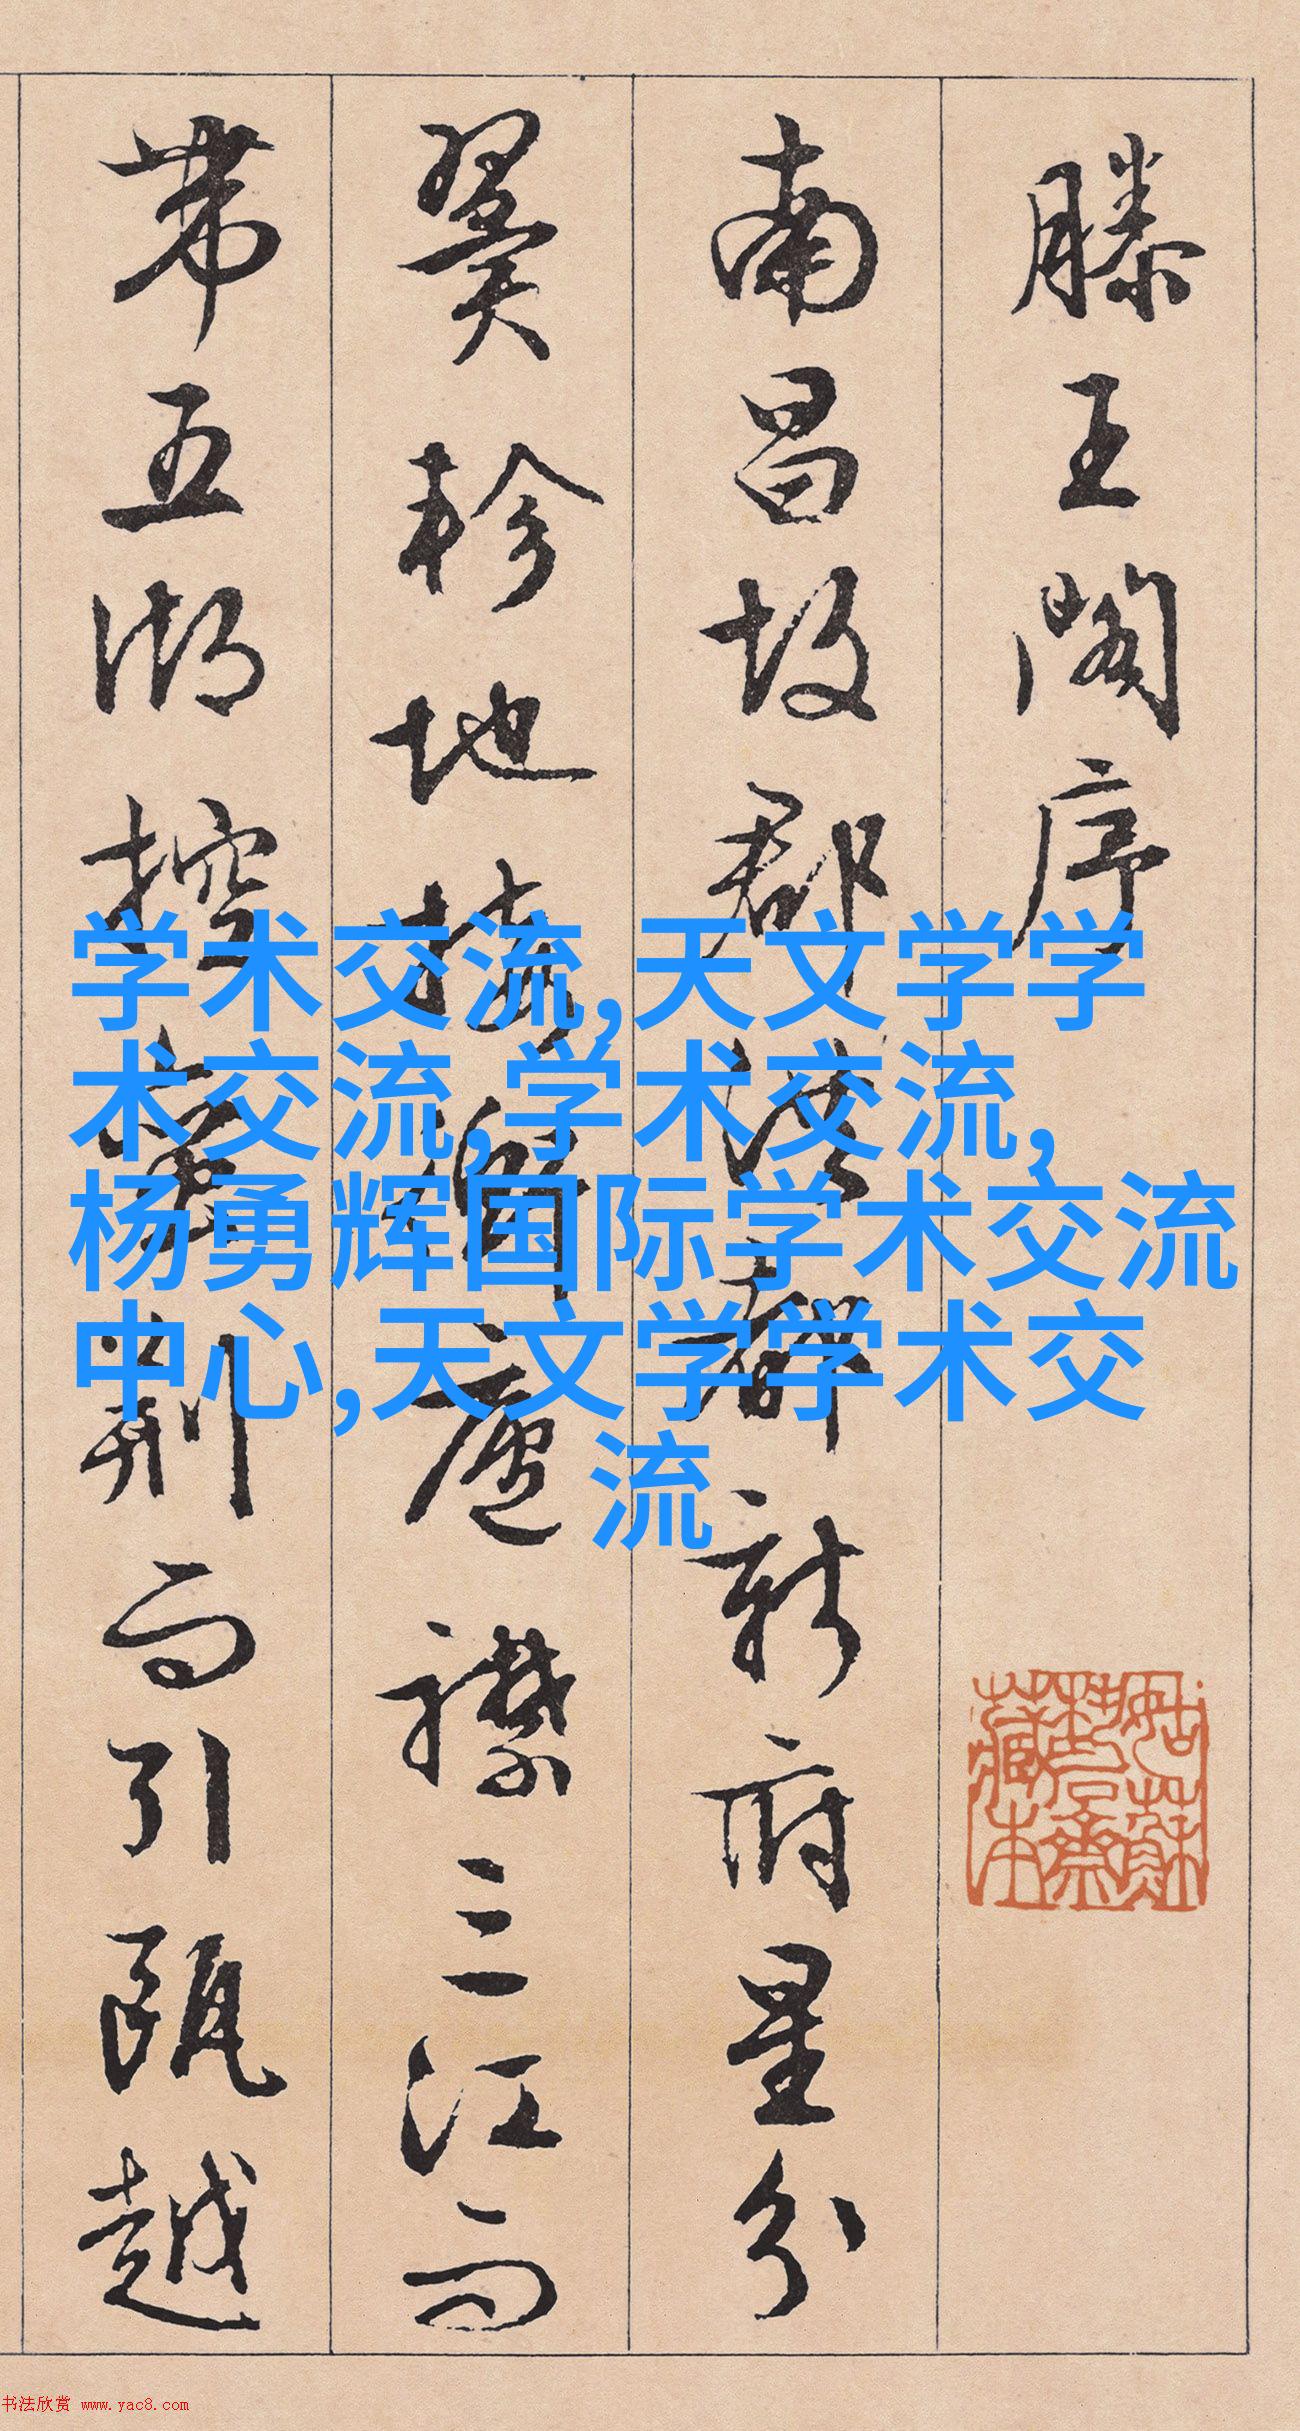 滕王閣序
南昌故郡洪都新府星分
翼軫地接衡廬襟三江而
帶五湖控蠻荊而引甌越
学术交流,天文学学
术交流,学术交流,
杨勇辉国际学术交流
中心,天文学学术交
流
书法欣赏 www.yac8.com